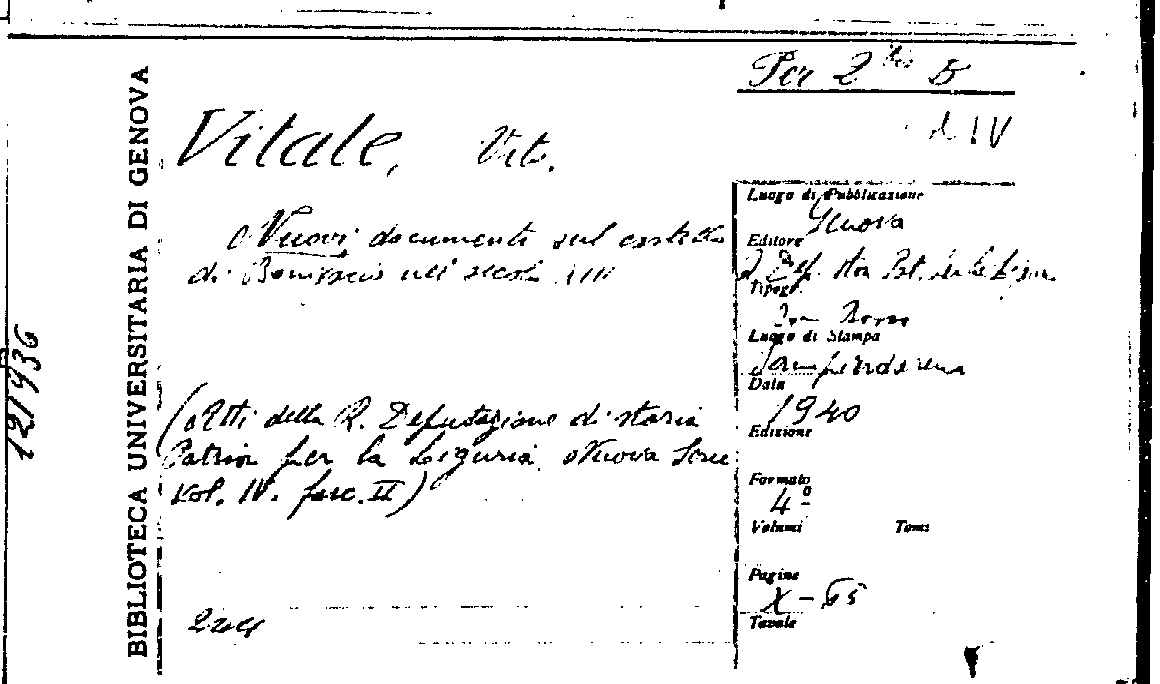 Per 2 bis B
d IV
BIBLIOTECA UNIVERSITARIA DI GENOVA
121936
Vitale, Vito.
Nuovi documenti sul castello
di Bonifacio nel secolo XIII
(Atti della R. Deputazione di storia
Patria per la Liguria. Nuova Serie
Vol. IV. fasc. II)
Luogo di Pubblicazione
Genova
Editore
R. Dep. Stor. Pat. della Liguria
Tipogr.
Don Bosco
Luogo di Stampa
Sampierdarena
Data
1940
Edizione
Formato
4º
Volumi Tomi
Pagine
X-65
Tavole